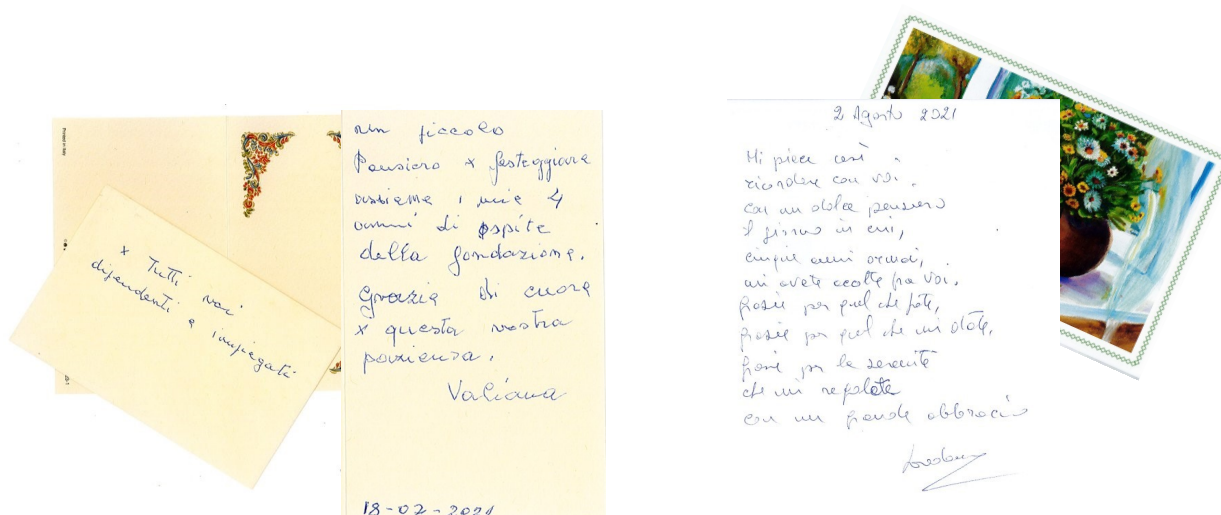 Printed in Italy
x Tutti voi
dipendenti e impiegati
un piccolo
Pensiero x festeggiare
assieme i miei 4
anni di ospite
della fondazione.
Grazie di cuore
x questa vostra
pazienza.
Valiana
18-02-2021
2 Agosto 2021
Mi piace così
ricordare con voi,
con un dolce pensiero
il giorno in cui,
cinque anni ormai,
mi avete accolta fra voi.
Grazie per quel che fate,
grazie per quel che mi date,
grazie per la serenità
che mi regalate
con un grande abbraccio